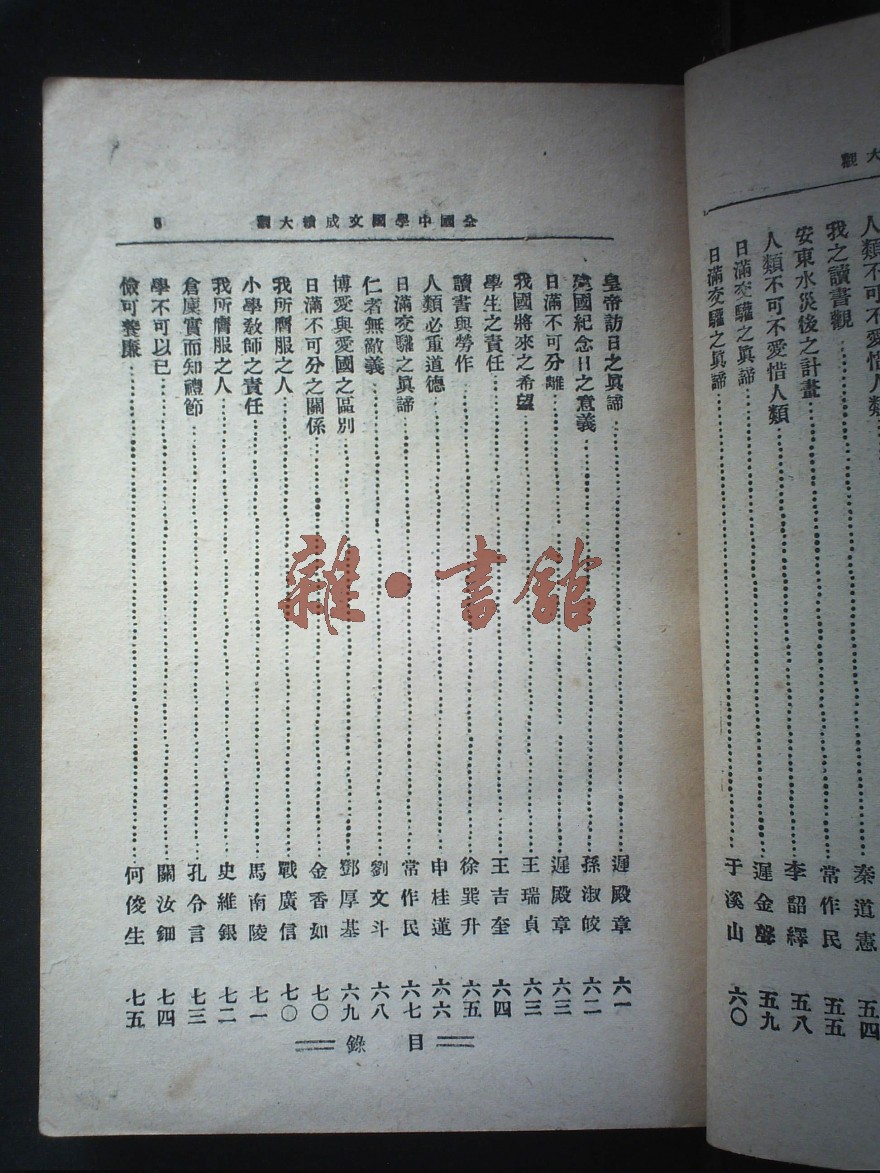 大觀
人類不可不愛惜人類 秦道憲 五四
我之讀書觀 常作民 五五
安東水災後之計畫 李韶繹 五八
人類不可不愛惜人類 遲金聲 五九
日滿交驩之眞諦
日滿交驩之眞諦 于溪山 六〇
全國中學國文成績大觀 5
皇帝訪日之眞諦 遲殿章 六一
建國紀念日之意義 孫淑皎 六二
日滿不可分離 遲殿章 六三
我國將來之希望 王瑞貞 六三
學生之責任 王吉奎 六四
讀書與勞作 徐巽升 六五
人類必重道德 申桂蓮 六六
日滿交驩之眞諦 常作民 六七
仁者無敵義 劉文斗 六八
博愛與愛國之區別 鄧厚基 六九
日滿不可分之關係 金香如 七〇
我所膺服之人 戰廣信 七〇
小學教師之責任 馬南陵 七一
我所膺服之人 史維銀 七二
倉廩實而知禮節 孔令言 七三
學不可以已 關汝鈿 七四
儉可養廉 何俊生 七五
目錄
雜·書館